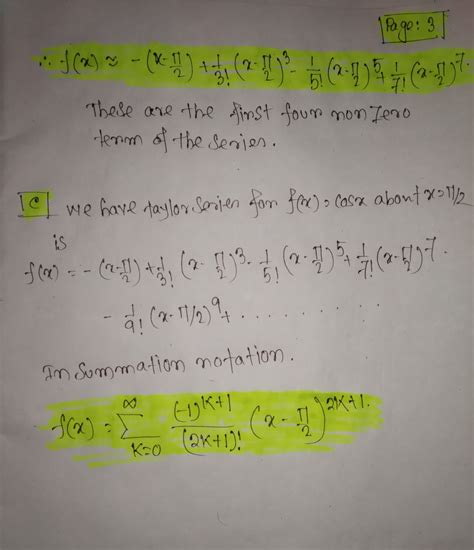 Page: 3
∴ f(x) ≈ -(x-π/2) + 1/3! (x-π/2)^3 - 1/5! (x-π/2)^5 + 1/7! (x-π/2)^7.
These are the first four non zero
term of the series.
C we have taylor series for f(x) = cosx about x=π/2
is
f(x) = -(x-π/2) + 1/3! (x-π/2)^3 - 1/5! (x-π/2)^5 + 1/7! (x-π/2)^7.
- 1/9! (x-π/2)^9 + . . . . . . . .
In summation notation.
f(x) = ∑_{K=0}^{∞} (-1)^{K+1}/(2K+1)! (x-π/2)^{2K+1}.